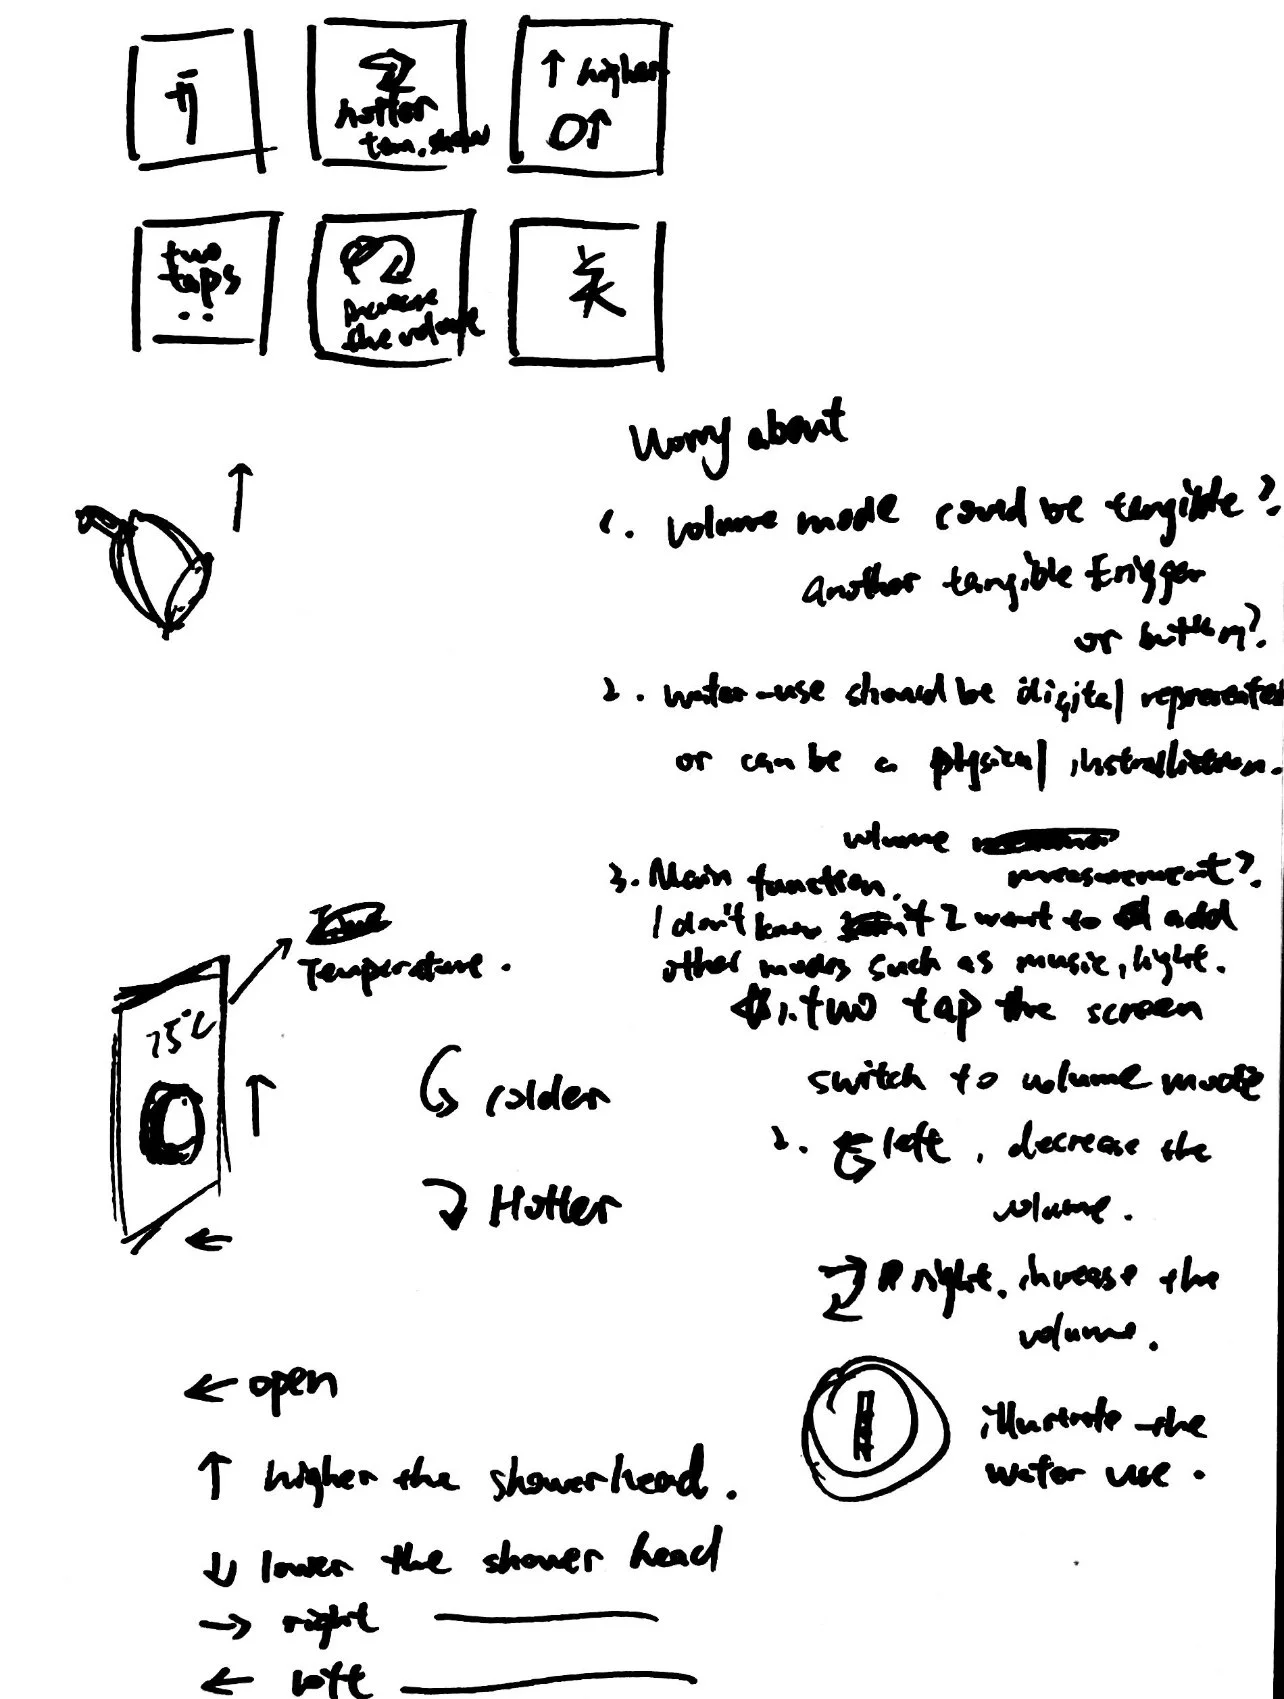 开
hotter
tem. show
↑ higher
two
taps
increase
the volume
关
Worry about
1. volume mode could be tangible?
another tangible trigger
or button?
2. water-use should be digital represented
or can be a physical installation.
volume
measurement?
3. Main function.
I don't know if I want to add
other modes such as music, light.
1. two tap the screen
switch to volume mode
2. left, decrease the
volume.
right. increase the
volume.
illustrate the
water use.
Temperature.
75°C
↑
colder
Hotter
←
← open
↑ higher the shower head.
↓ lower the shower head
→ right
← left